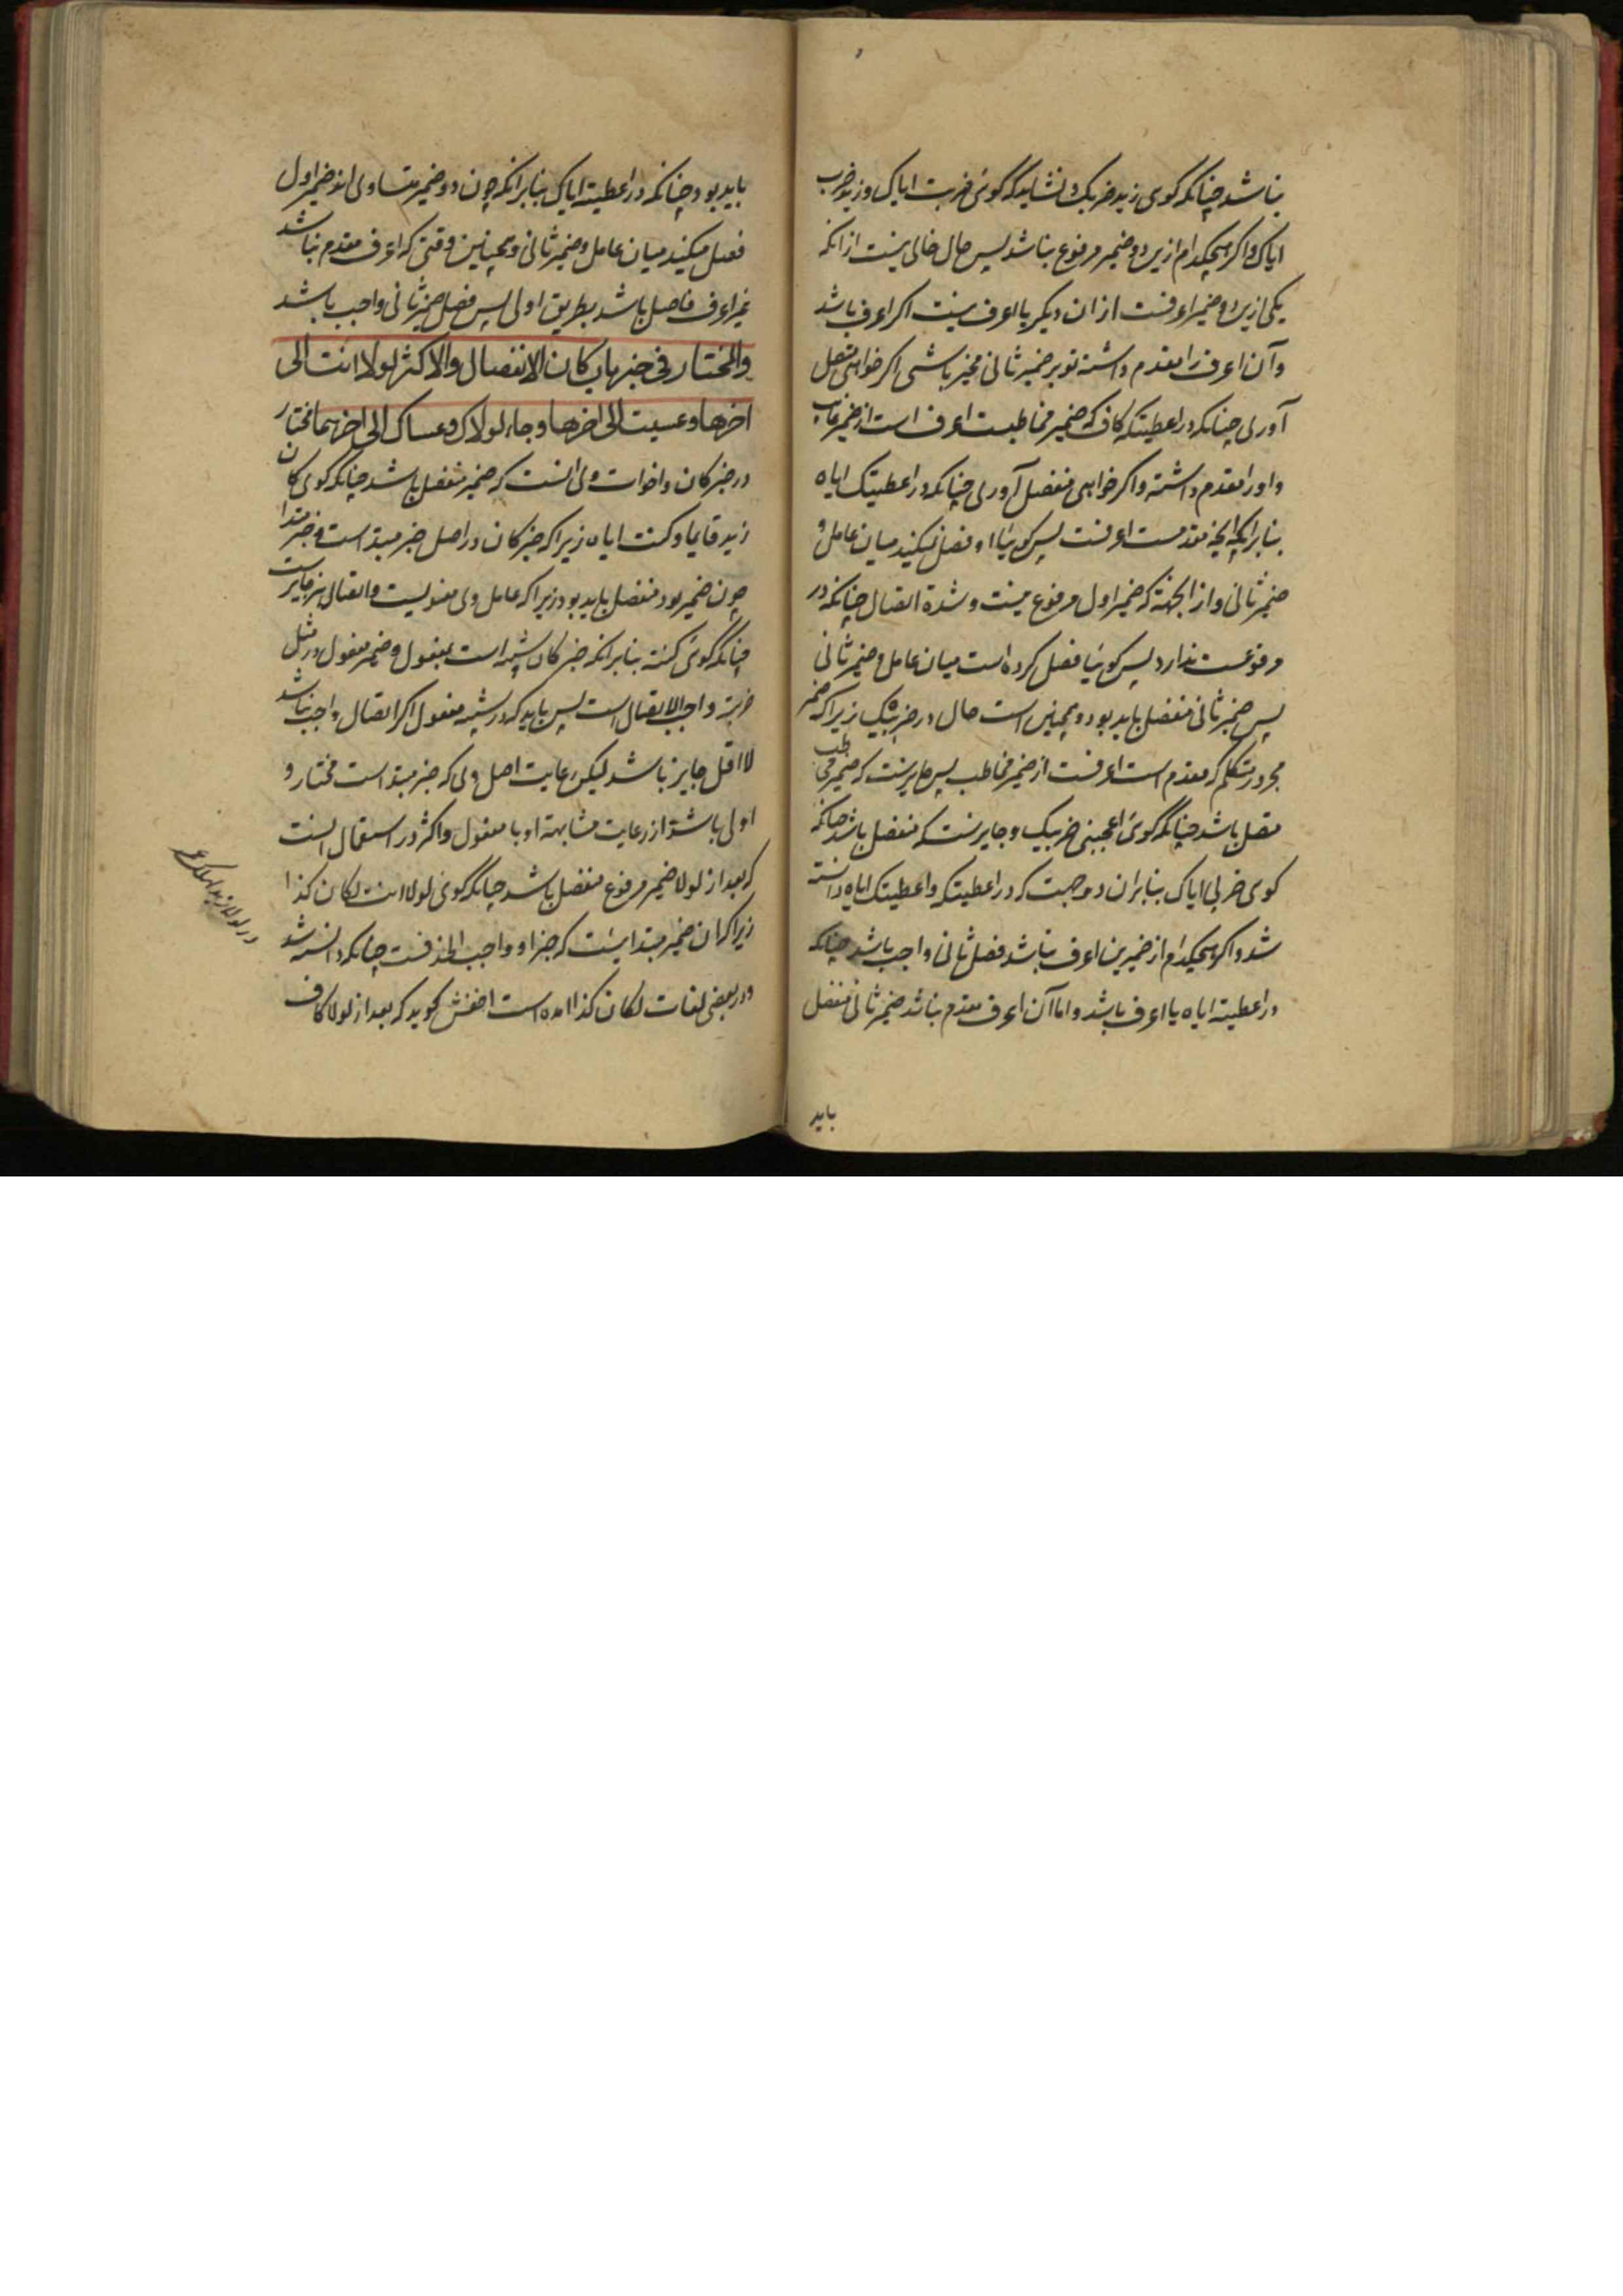 نباشد چنانکه کوی زید ضربک و نشاید که گوئی ضربت ایاک و زید ضرب
ایاک و اکر هیچکدام ازین دو ضمیر مرفوع نباشد پس حال خالی نیست از انکه
یکی ازین دو ضمیر اعرفست از ان دیکر یا اعرف نیست اکر اعرف باشد
و آن اعرف را مقدم داشته تو بر ضمیر ثانی مخیر باشی اکر خواهی متصل
آوری چنانکه در اعطیتکه کاف که ضمیر مخاطبست اعرف است از ضمیر غایب
و او را مقدم داشته و اکر خواهی منفصل آوری چنانکه در اعطیتک ایاه
بنابر انکه انچه مقدمست اعرفست پس کوییا او فصل نمیکند میان عامل و
ضمیر ثانی و از انجهة که ضمیر اول مرفوع نیست و شدة اتصال چنانکه در
مرفوعست ندارد پس کوییا فصل کرده است میان عامل و ضمیر ثانی
پس ضمیر ثانی منفصل باید بود و همچنین است حال در ضربیک زیرا که ضمیر
مجرور متکلم که مقدم است اعرفست از ضمیر مخاطب پس جایزست که ضمیر مخاطب
متصل باشد چنانکه گوئی اعجبنی ضربیک و جایزست که منفصل باشد چنانکه
کوی ضربی ایاک بنابر ان دو جهت که در اعطیتکه و اعطیتک ایاه دانسته
شد و اکر هیچکدام از ضمیرین اعرف نباشد فصل ثانی واجب باشد چنانکه
در اعطیته ایاه یا اعرف باشد و اما آن اعرف مقدم نباشد ضمیر ثانی منفصل
باید
باید بود چنانکه در اعطیته ایاک بنابر انکه چون دو ضمیر متساوی اند ضمیر اول
فصل میکند میان عامل و ضمیر ثانی و همچنین وقتی که اعرف مقدم نباشد
غیر اعرف فاصل باشد بطریق اولی پس فصل ضمیر ثانی واجب باشد
والمختار فی خبر باب کان الانفصال والاکثر لولا انت الی
اخرها و عسیت الی اخرها و جاء لولاک و عساک الی اخرهما مختار
در خبر کان و اخوات وی انست که ضمیر منفصل باشد چنانکه کوی کان
زید قایما و کنت ایاه زیرا که خبر کان در اصل خبر مبتدا است و خبر مبتدا
چون ضمیر بود منفصل باید بود زیرا که عامل وی معنویست و اتصال نیز جایزست
چنانکه گوئی کنته بنابر انکه خبر کان شبیه است بمفعول و ضمیر مفعول در مثل
ضربته واجب الاتصال است پس باید که در شبیه مفعول اکر اتصال واجب نباشد
لا اقل جایز باشد لیکن رعایت اصل وی که خبر مبتدا است مختار و
اولی باشد از رعایت مشابهة او با مفعول و اکثر در استعمال انست
که بعد از لولا ضمیر مرفوع منفصل باشد چنانکه گوئی لولا انت لکان کذا
زیرا که ان ضمیر مبتدا ایست که خبر او واجب الحذفست چنانکه دانسته شد
و در بعضی لغات لکان کذا امده است اخفش کوید که بعد از لولا کاف
در لولا زید لهلک عمر